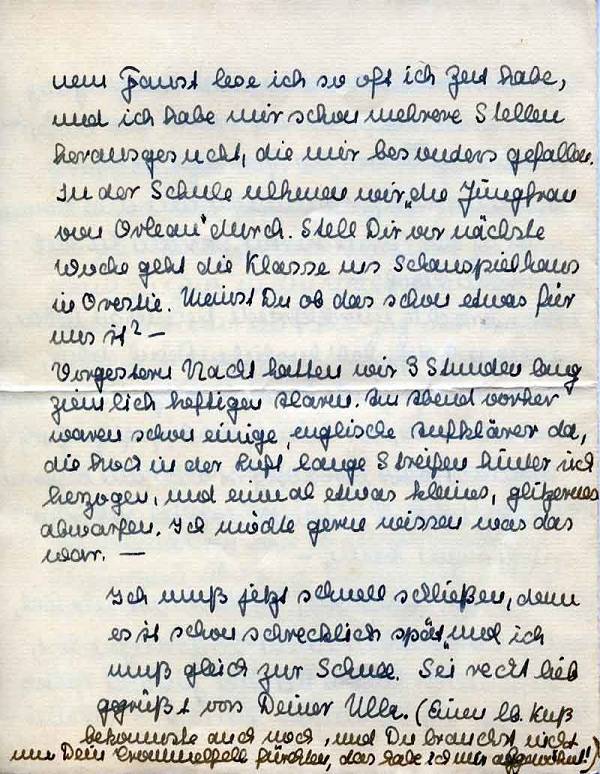 nem Faust lese ich so oft ich Zeit habe,
und ich habe mir schon mehrere Stellen
herausgesucht, die mir besonders gefallen.
In der Schule nehmen wir „die Jungfrau
von Orlean" durch. Stell Dir vor nächste
Woche geht die Klasse ins Schauspielhaus
in Orestie. Meinst Du ob das schon etwas für
uns ist? —
Vorgestern Nacht hatten wir 3 Stunden lang
ziemlich heftigen Alarm. Am Abend vorher
waren schon einige englische Aufklärer da,
die hoch in der Luft lange Streifen hinter sich
herzogen, und einmal etwas kleines, glitzernes
abwarfen. Ich möchte gern wissen was das
war. —
Ich muß jetzt schnell schließen, denn
es ist schon schrecklich spät und ich
muß gleich zur Schule. Sei recht lieb
gegrüßt von Deiner Ulla. (Einen lb. Kuß
bekommste auch noch, und Du brauchst nicht
um Dein Trommelfell fürchten, das habe ich mir abgewöhnt!!)